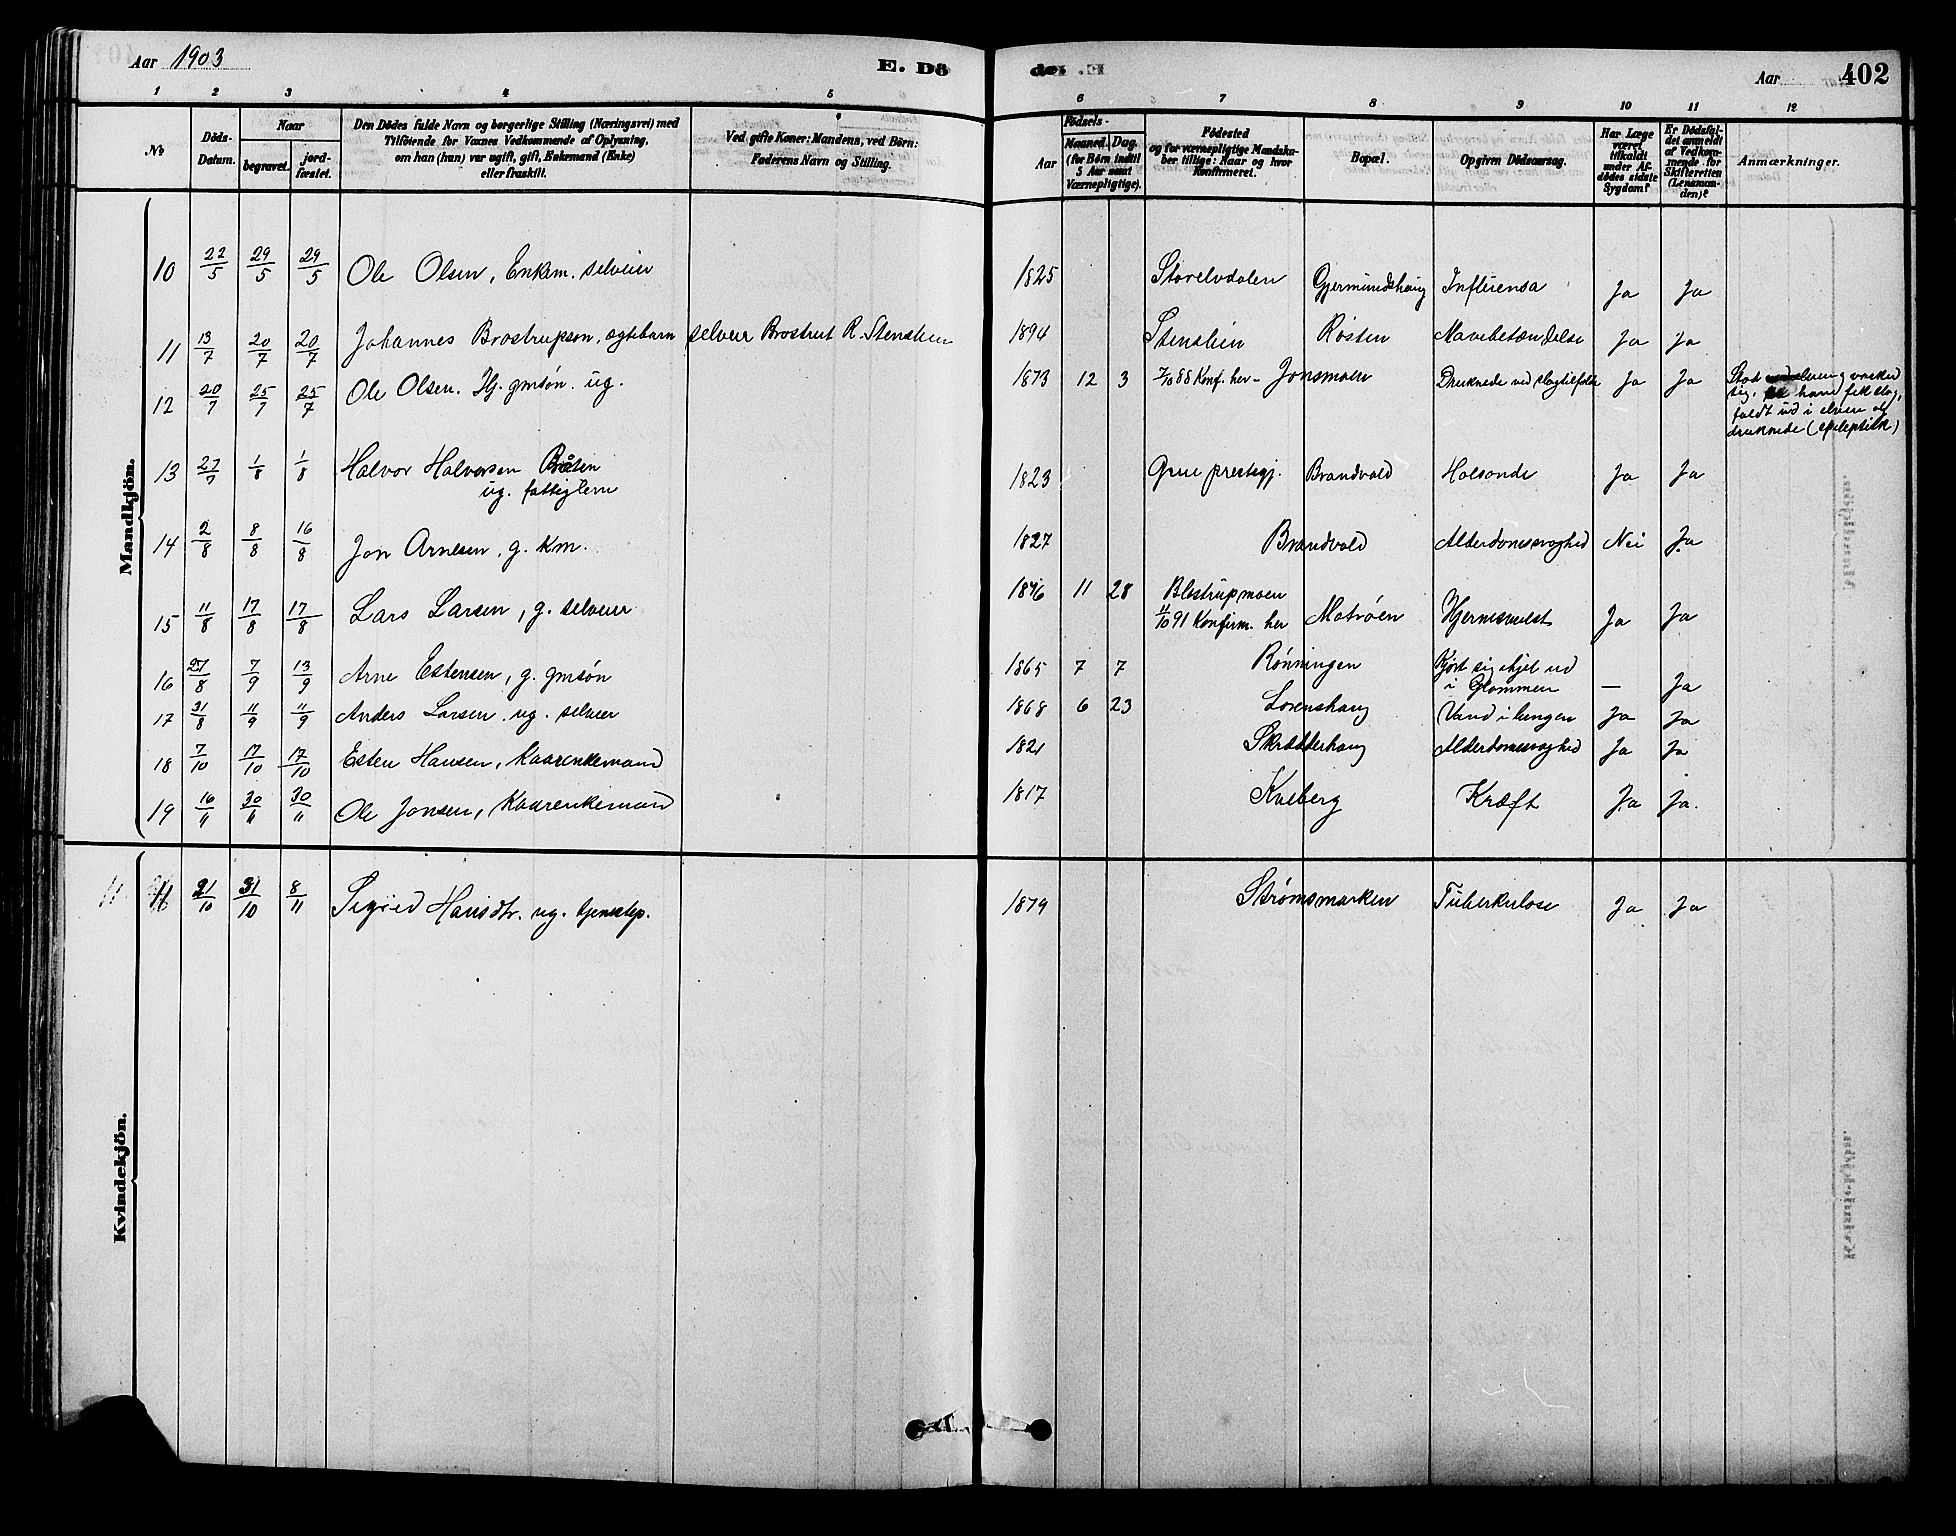 Aar 1903
E. Dö
de.
Aar
402
1 2 3 4 5 6 7 8 9 10 11 12
No
Döds-Datum.
Naar
begravet.
jord-fæstet.
Den Dödes fulde Navn og borgerlige Stilling (Næringsvei) med
Tilföiende for Voxnes Vedkommende af Oplysning,
om han (hun) var ugift, gift, Enkemand (Enke)
eller fraskilt.
Ved gifte Koner: Mandens, ved Börn:
Faderens Navn og Stilling.
Födsels-
Aar
Maaned. Dag.
(for Börn indtil
5 Aar samt
Værnepligtige).
Födested
og for værnepligtige Mandska-
ber tillige: Naar og hvor
Konfirmeret.
Bopæl.
Opgiven Dödsaarsag.
Har Læge
været
tilkaldt
under Af-
dödes sidste
Sygdom?
Er Dödsfal-
det anmeldt
af Vedkom-
mende for
Skifteretten
(Lensman-
den)?
Anmærkninger.
Mandkjön.
10 22/5 29/5 29/5 Ole Olsen, Enkem. selveier 1825 Storelvdalen Gjermundshaug Influensa Ja Ja
11 13/7 20/7 20/7 Johannes Brostrupsøn, ægtebarn selveier Brostrut R. Stenslien 1894 Stenslien Røsten Mavebetændelse Ja Ja
12 20/7 25/7 25/7 Ole Olsen. Hj. gmsøn. ug. 1873 12 3 2/10 88 Konf. her - Jonsmoen Druknede ved slagtilfælde Ja Ja
Stod elven og vasket
sig, han fik slag,
faldt ud i elven og
druknede (epileptisk)
13 27/7 1/8 1/8 Halvor Halvorsen Bråten
ug. fattiglem
1823 Grue prestegj. Brandvold Halsonde Ja Ja
14 2/8 8/8 16/8 Jon Arnesen, g. Km. 1827 Brandvold Alderdomssvaghed Nei Ja
15 11/8 17/8 17/8 Lars Larsen, g. selveier 1876 11 28 Blostrupmoen
11/10 91 Konfirm. her Motrøen Hjernesvulst Ja Ja
16 27/8 7/9 13/9 Arne Estensen, g. gmsøn 1865 7 7 Rønningen Kjørt sig ihjel ud
i Glommen — Ja
17 31/8 11/9 11/9 Anders Larsen ug. selveier 1868 6 23 Lorenshaug Vand i lungen Ja Ja
18 7/10 17/10 17/10 Esten Hansen, Kaarenkemand 1821 Skrædderhaug Alderdomssvaghed Ja Ja
19 16/11 30/11 30/11 Ole Jonsen, Kaarenkemand 1817 Kveberg Kræft Ja Ja.
Kvindekjön.
11 11 21/10 31/10 8/11 Sigrid Hansdtr. ug. tjenestep. 1879 Strømsmarken Tuberkulose Ja Ja